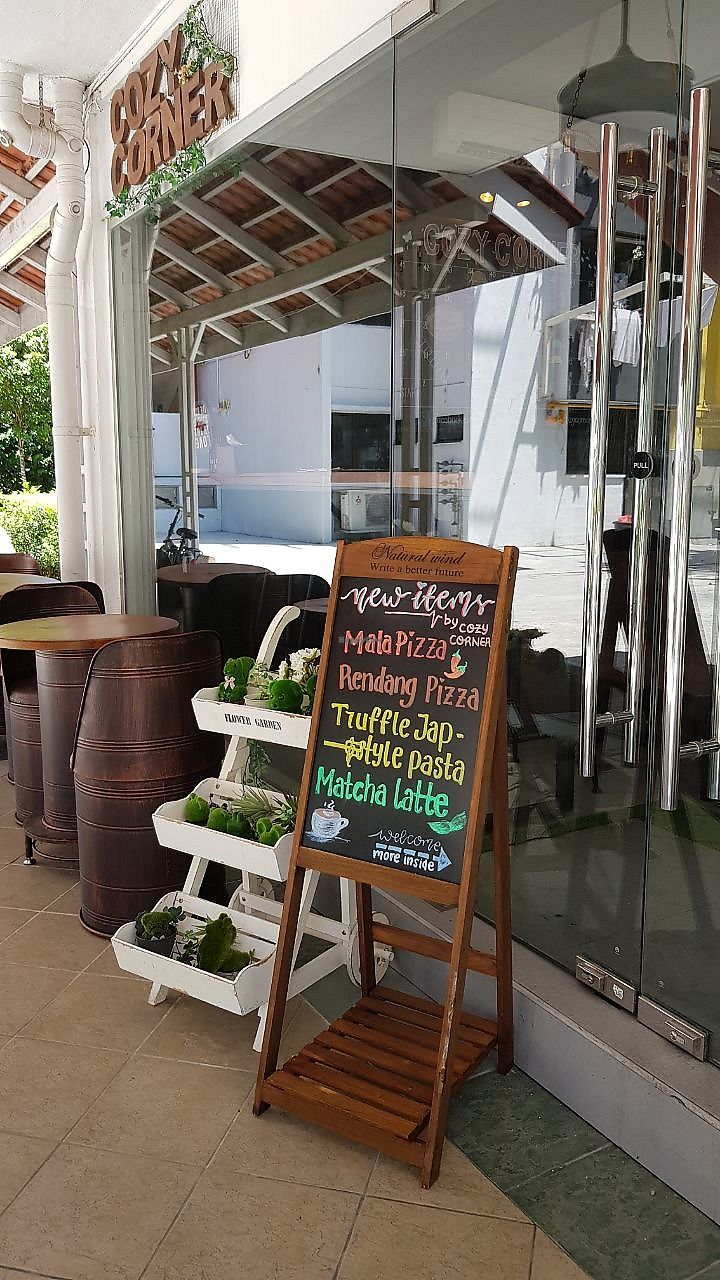 COZY
CORNER
COZY CORN
PULL
Natural wind
Write a better future
new items
by COZY
CORNER
Mala Pizza
Rendang Pizza
Truffle Jap-
style pasta
Matcha latte
welcome
more inside
FLOWER GARDEN